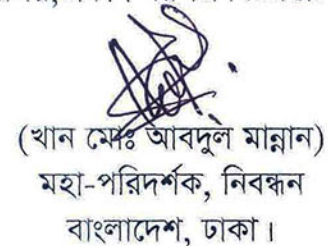 (খান মোঃ আবদুল মান্নান)
মহা-পরিদর্শক, নিবন্ধন
বাংলাদেশ, ঢাকা।